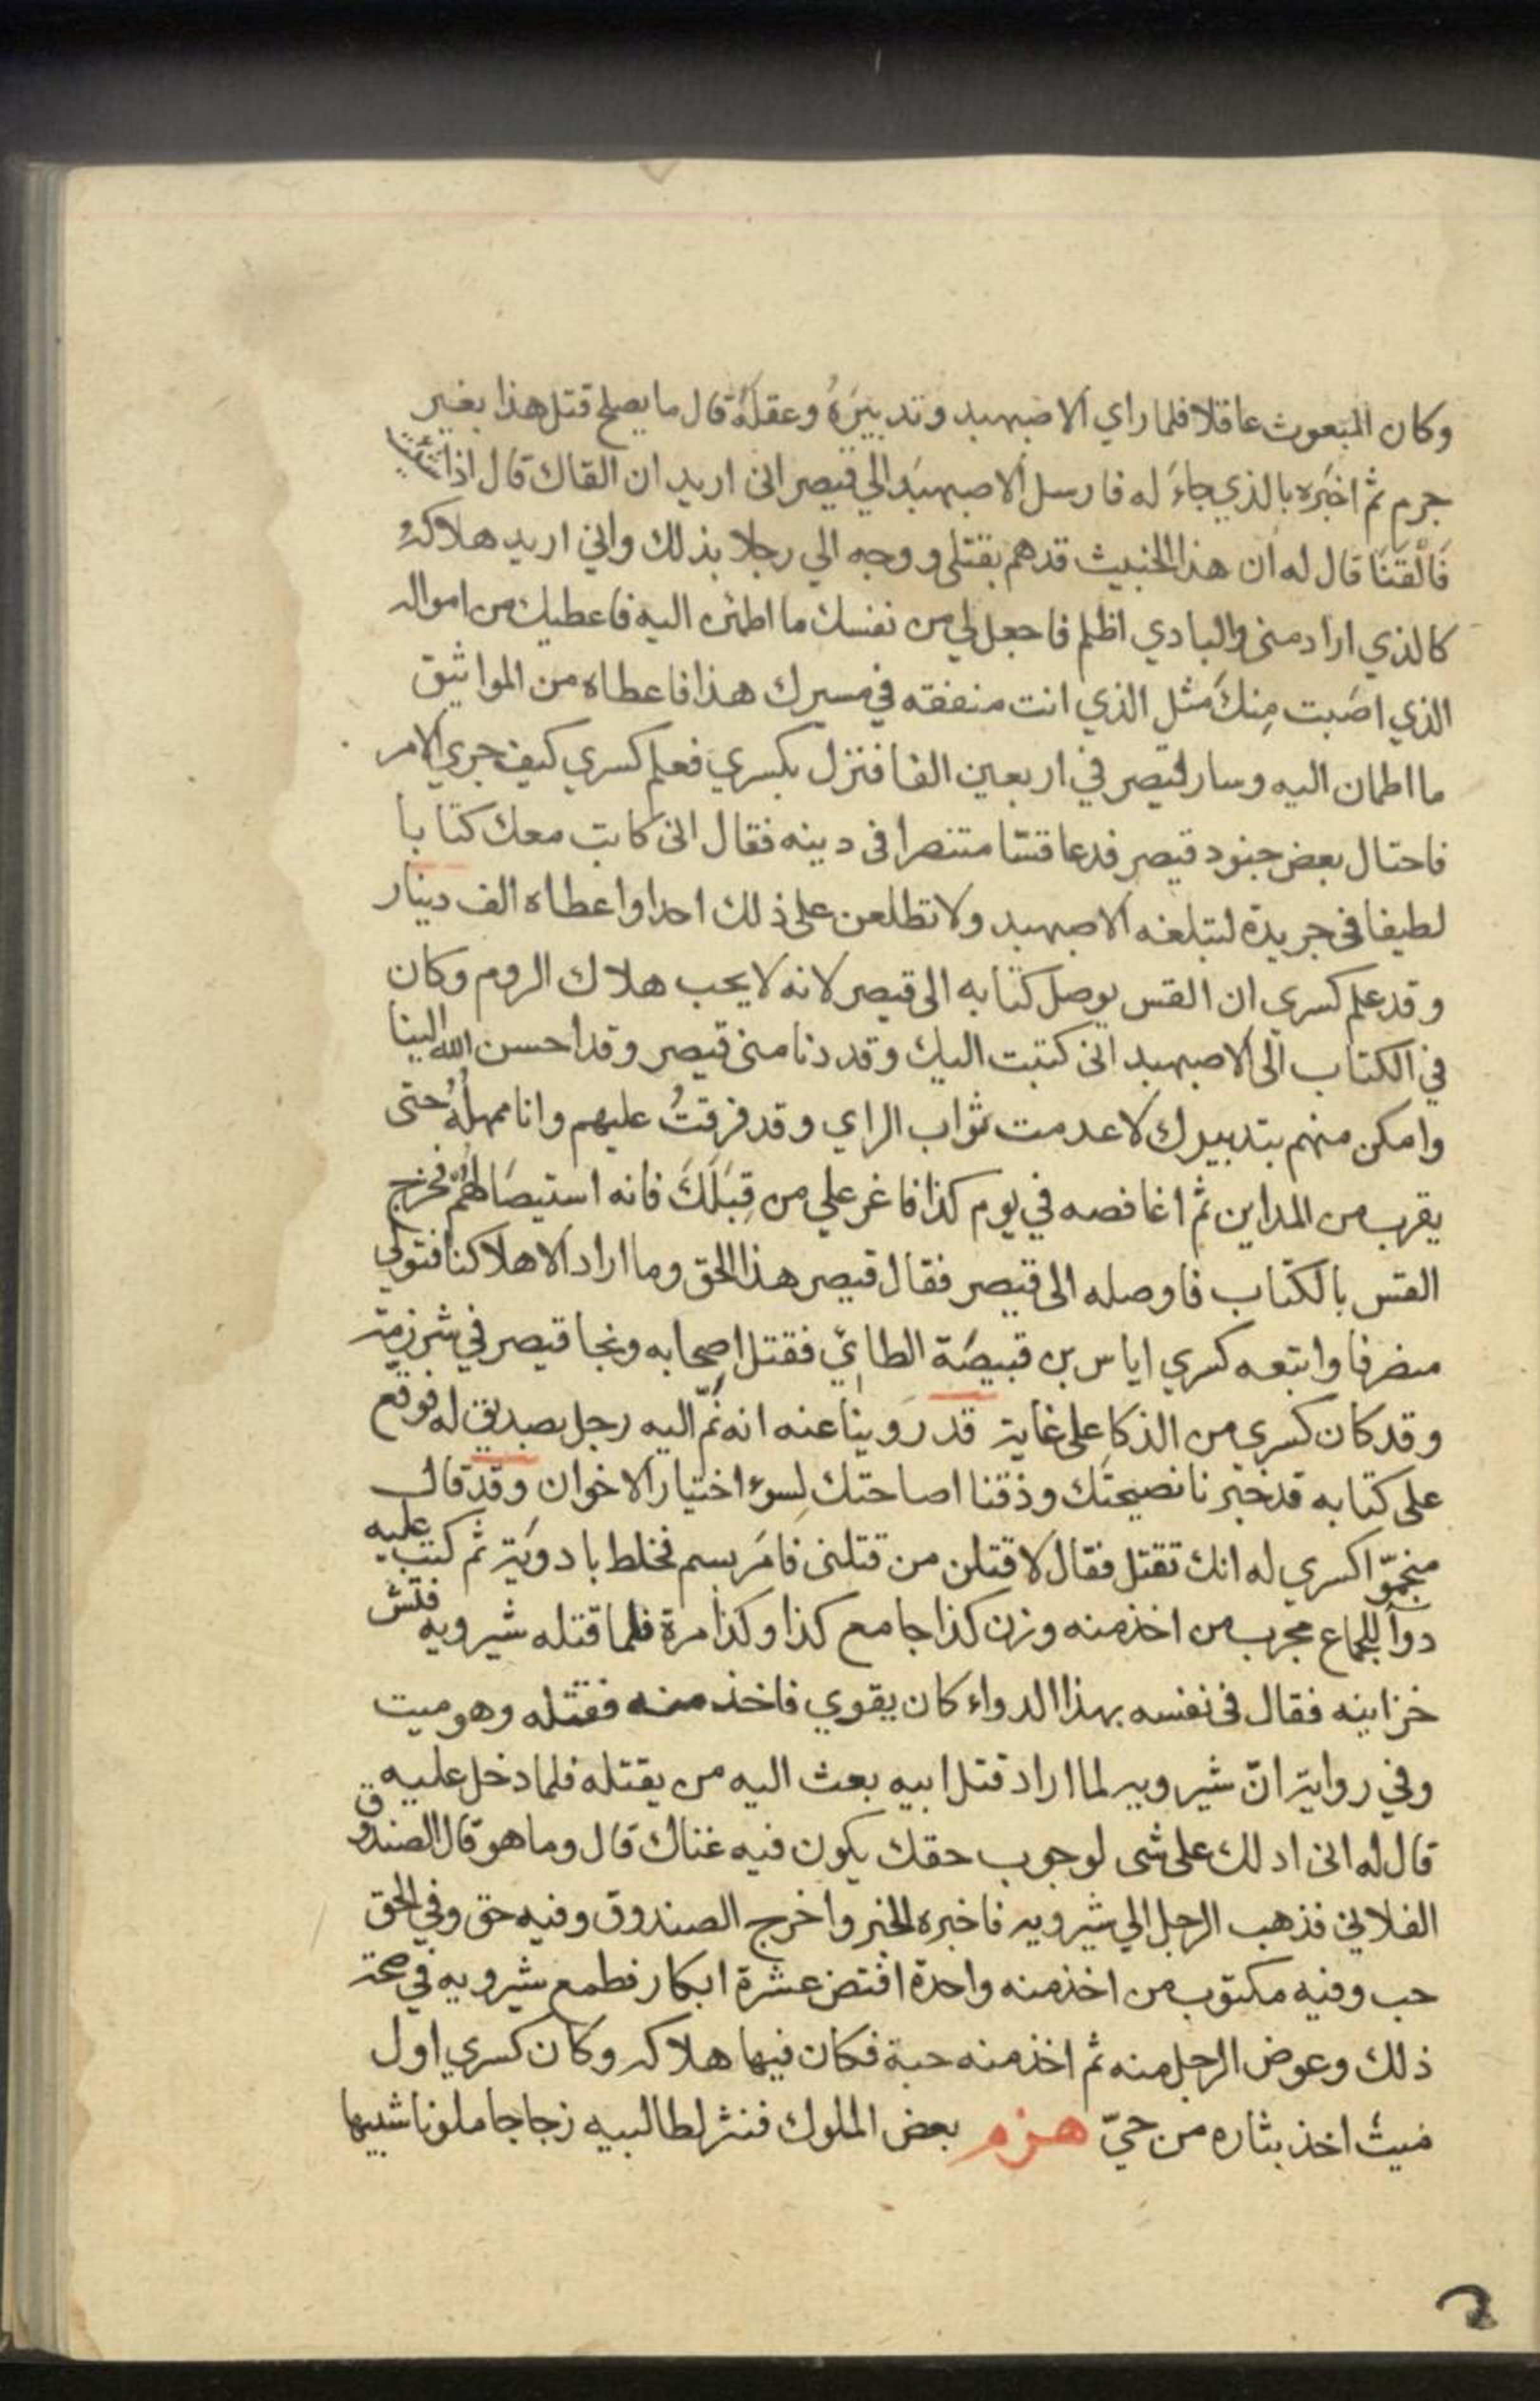 وكان المبعوث عاقلا فلما راي الاصبهبد وتدبيرَهُ وعقلَهُ قال ما يصلح قتل هذا بغير
جرم ثم اخبَره بالذي جاءَ له فارسل الاصبهبَد الي قيصر انى اريد ان القاك قال اذا شئت
فَالْتَقَيَا قال له ان هذا الخبيث قد هم بقتلى ووجه الي رجلا بذلك واني اريد هلاكهُ
كالذي اراد منى والبادي اظلم فاجعل لي من نفسك ما اطمئن اليه فاعطيك من امواله
الذي اصَبت مِنكَ مثل الذي انت منفقه في مسيرك هذا فاعطاه من المواثيق
ما اطمان اليه وسار قيصر في اربعين الفا فنزل بكسري فعلم كسري كيف جري الامر
فاحتال بعض جنود قيصر فدعا قسّا متنصرا فى دينه فقال انى كاتب معك كتابا
لطيفا فى جريدة لتبلغه الاصبهبد ولا تطلعن على ذلك احدا واعطاه الف دينار
وقد علم كسرى ان القس يوصل كتابه الى قيصر لانه لا يحب هلاك الروم وكان
في الكتاب الى الاصبهبد انى كتبت اليك وقد دنا منى قيصر وقد احسن الله الينا
وامكن منهم بتدبيرك لا عدمت ثواب الراي وقد فرقتُ عليهم وانا ممهلُهُ حتى
يقرب من المداين ثم اغافصه في يوم كذا فاغر علي من قِبَلَكَ فانه استيصَالهُمْ فخرج
القس بالكتاب فاوصله الى قيصر فقال قيصر هذا الحق وما اراد الا هلاكنا فتولي
منصرفا واتبعه كسري اياس بن قبيصَة الطائي فقتل اصحابه ونجا قيصر في شرذمة
وقد كان كسري من الذكا على غاية قد روينا عنه انه نَمّ اليه رجل بصديق له فوقع
على كتابه قد خبرنا نصيحتَك وذقنا اصاحتك لسوء اختيار الاخوان وقد قال
منجمّوا كسري له انك تقتل فقال لاقتلن من قتلنى فامَر بسم فخلط بادويَة ثم كتب عليه
دوآ للجماع مجرب من اخذ منه وزن كذا جامع كذا وكذا مرة فلما قتله شيرويه فتش
خزاينه فقال فى نفسه بهذا الدواء كان يقوي فاخذ منه فقتله وهو ميت
وفي رواية انّ شيرويه لما اراد قتل ابيه بعث اليه من يقتله فلما دخل عليه
قال له انى ادلك على شى لوجوب حقك يكون فيه غناك قال وما هو قال الصندوق
الفلاني فذهب الرجل الي شيرويه فاخبره الخبر واخرج الصندوق وفيه حق وفي الحق
حب وفيه مكتوب من اخذ منه واحدة افتض عشرة ابكار فطمع شيرويه في صحة
ذلك وعوض الرجل منه ثم اخذ منه حبة فكان فيها هلاكه وكان كسري اول
ميت اخذ بثاره من حيّ هزم بعض الملوك فنثر لطالبيه زجاجا ملونا شبيها